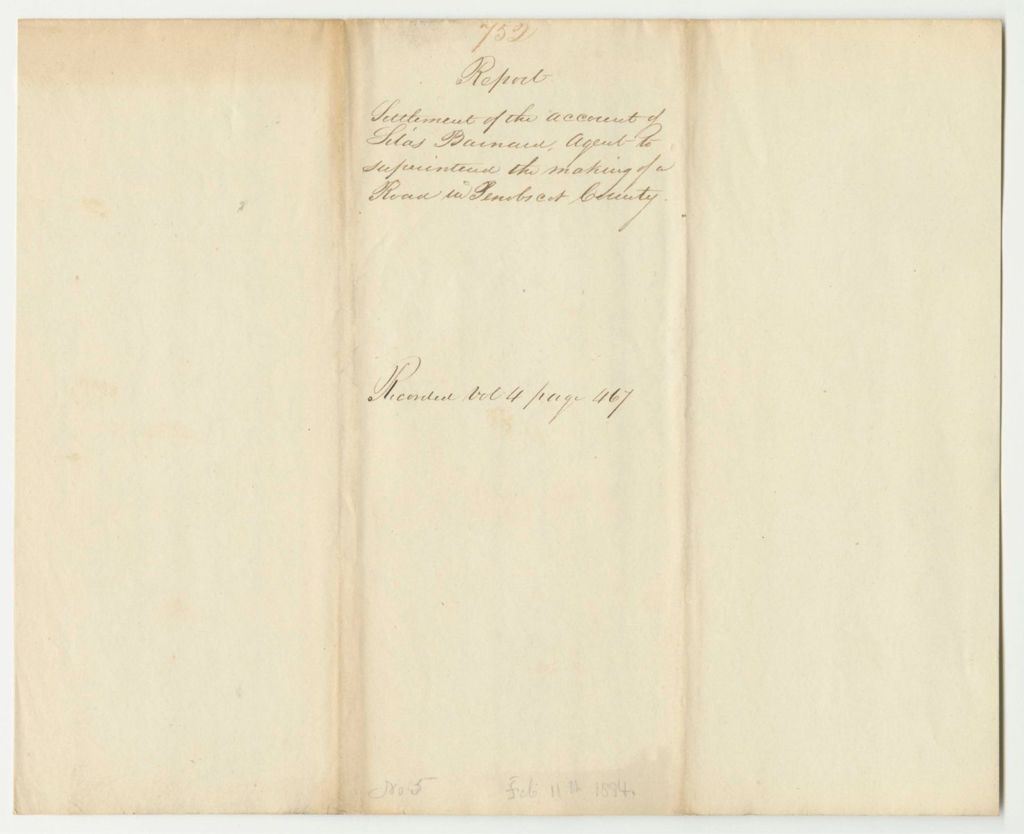 752
Report
Settlement of the account of
Silas Barnard, Agent to
superintend the making of a
Road in Penobscot County.
Recorded Vol 4 page 467
No 5 Feb 11th 1834.